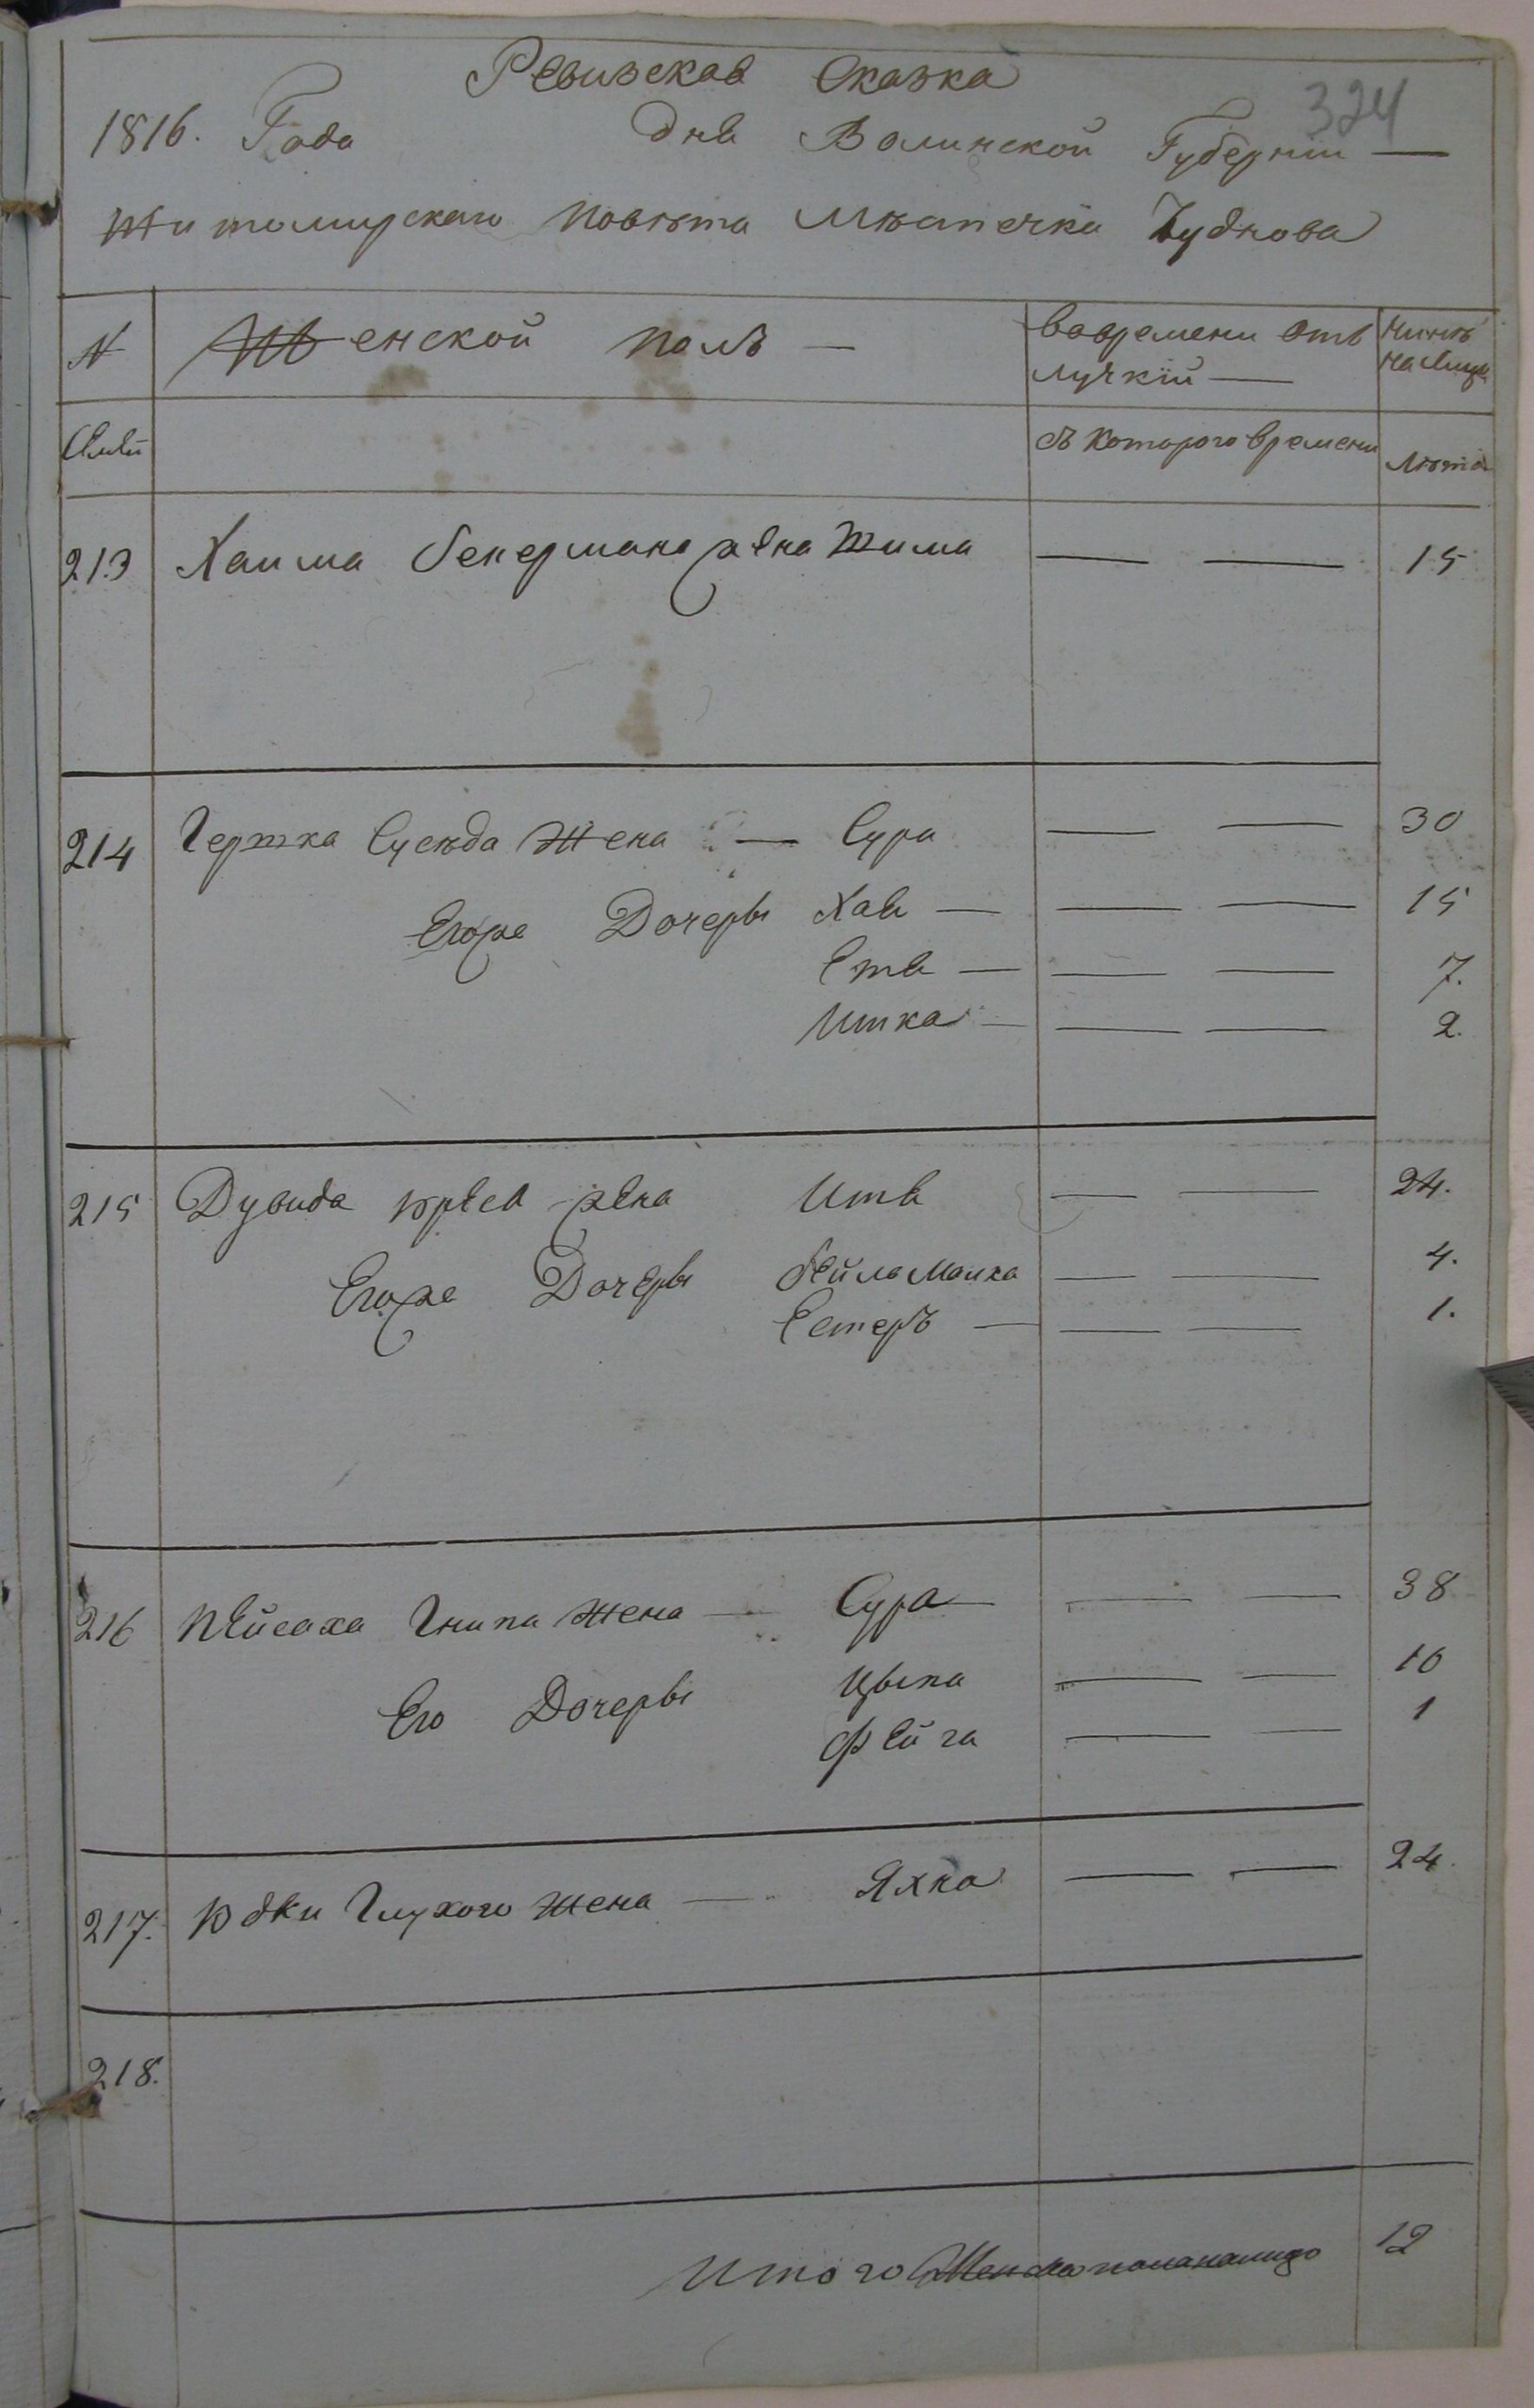 324
Ревизская Сказка
1816. Года дня Волинской Губернии —
Житомирского Повѣта Мѣстечка Чуднова
N Женской Полъ — Вовремени Отлучкій — Нынѣ на лицо
Семей съ которого времени Лѣта
213 Хаима Бекермана жена Жима — — 15
214 Гершка Сусѣда Жена — Сура — — 30
Егоже Дочеры Хая — — — 15
Етя — — — 7.
Итка — — — 2.
215 Дувида жена Итя — — 24.
Егоже Дочеры Бейля Малка — — 4.
Естеръ — — — 1.
216 Пейсаха Гнипа Жена — Сура — — — 38
Его Дочеры Цыпа — — 10
Фейга — — 1
217. Юдки Глухого Жена — Яхна — — 24.
218.
Итого Женска пола налицо 12